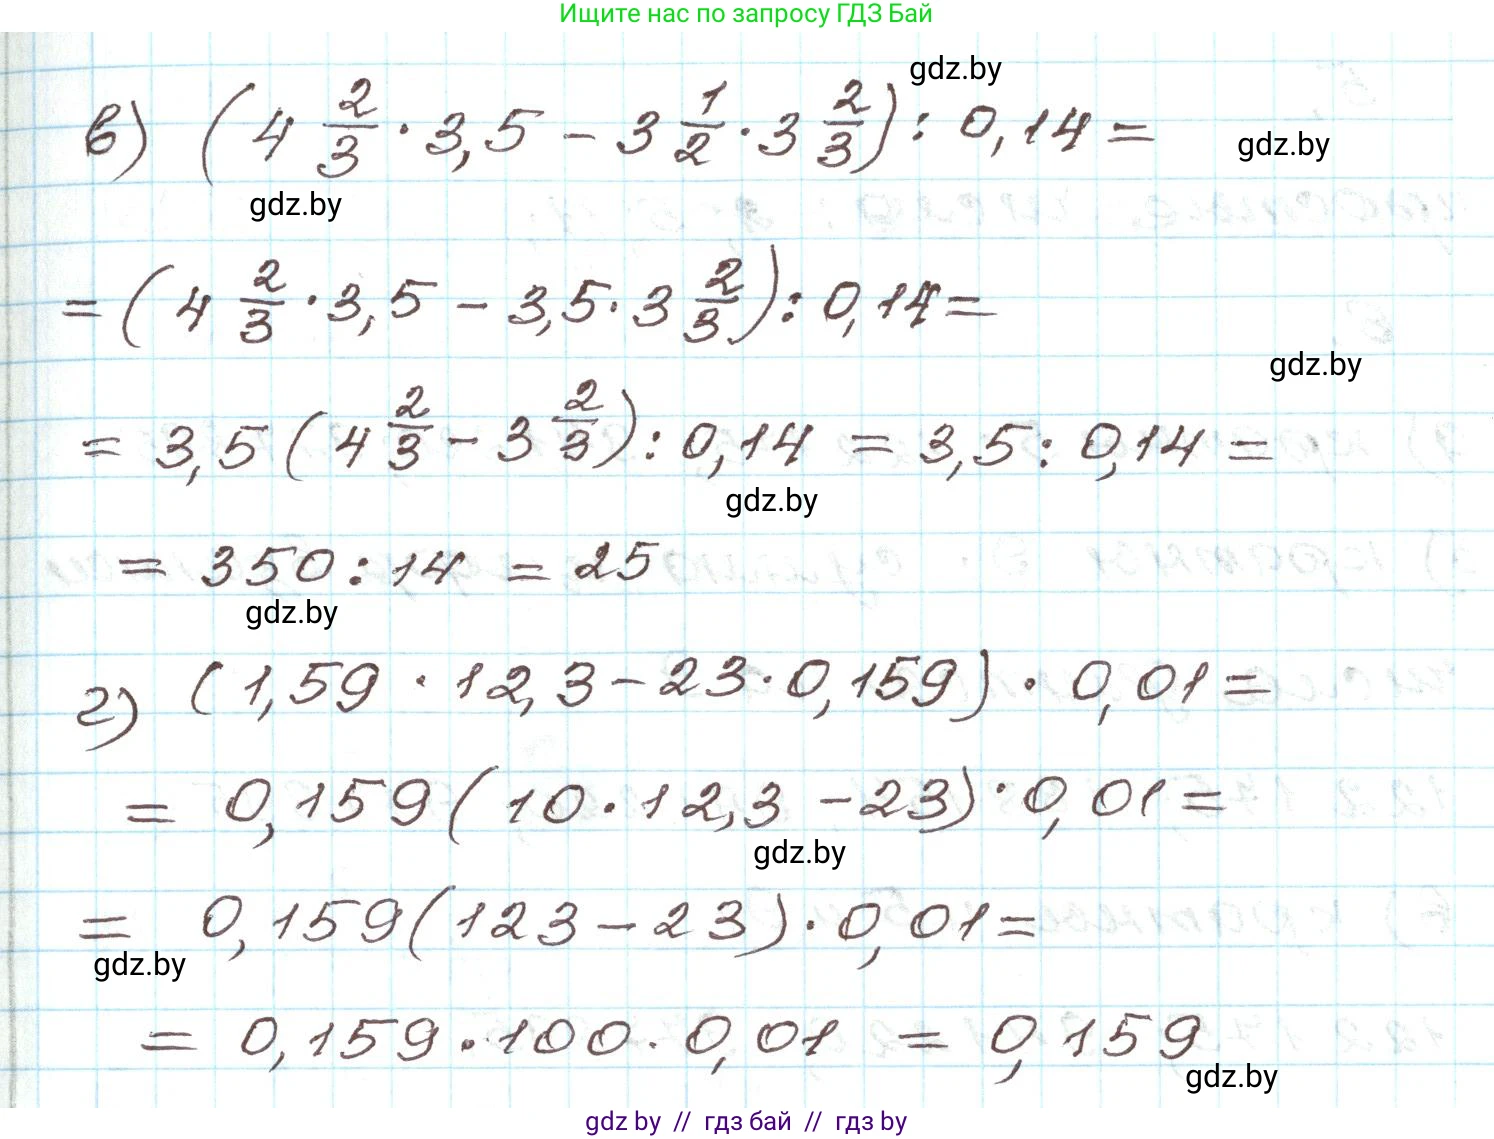 Ищите нас по запросу ГДЗ Бай
в) (4 2/3 · 3,5 - 3 1/2 · 3 2/3) : 0,14 =
gdz.by
gdz.by
gdz.by
= (4 2/3 · 3,5 - 3,5 · 3 2/3) : 0,14 =
gdz.by
= 3,5 (4 2/3 - 3 2/3) : 0,14 = 3,5 : 0,14 =
gdz.by
= 350 : 14 = 25
gdz.by
г) (1,59 · 12,3 - 23 · 0,159) · 0,01 =
= 0,159 (10 · 12,3 - 23) · 0,01 =
gdz.by
= 0,159 (123 - 23) · 0,01 =
gdz.by
= 0,159 · 100 · 0,01 = 0,159
gdz.by
gdz by // гдз бай // гдз by